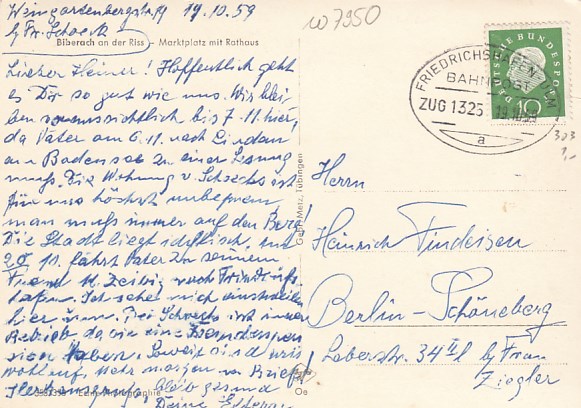 Weingartenbergstr. 19 19.10.59
b/ Fr. Schock
Biberach an der Riss - Marktplatz mit Rathaus
Lieber Heiner! Hoffentlich geht
es Dir so gut wie uns. Wir blei-
ben voraussichtlich bis 7.11. hier,
da Vater am 6.11. nach Lindau
am Bodensee zu einer Lesung
muß. Die Wohnung v. Schocks ist
für uns höchst unbequem,
man muß immer auf den Berg!
Die Stadt liegt idyllisch, am
20.10. fährt Vater zu seinem
Freund nach Friedrichs-
hafen. Ich sehe mich
hier um. Bei Schocks ist immer
Betrieb, da sie eine Fremdenpen-
sion haben. Soweit sind wir
wohlauf. Mehr morgen im Brief!
bleib gesund
Deine Eltern
Gebr. Metz, Tübingen
Oe
W 7950
DEUTSCHE BUNDESPOST
10
FRIEDRICHSHAFEN - ULM
BAHNPOST
ZUG 1325 19.10.59
a
303
1,-
Herrn
Heinrich Findeisen
Berlin-Schöneberg
34 II l b/ Frau
Ziegler